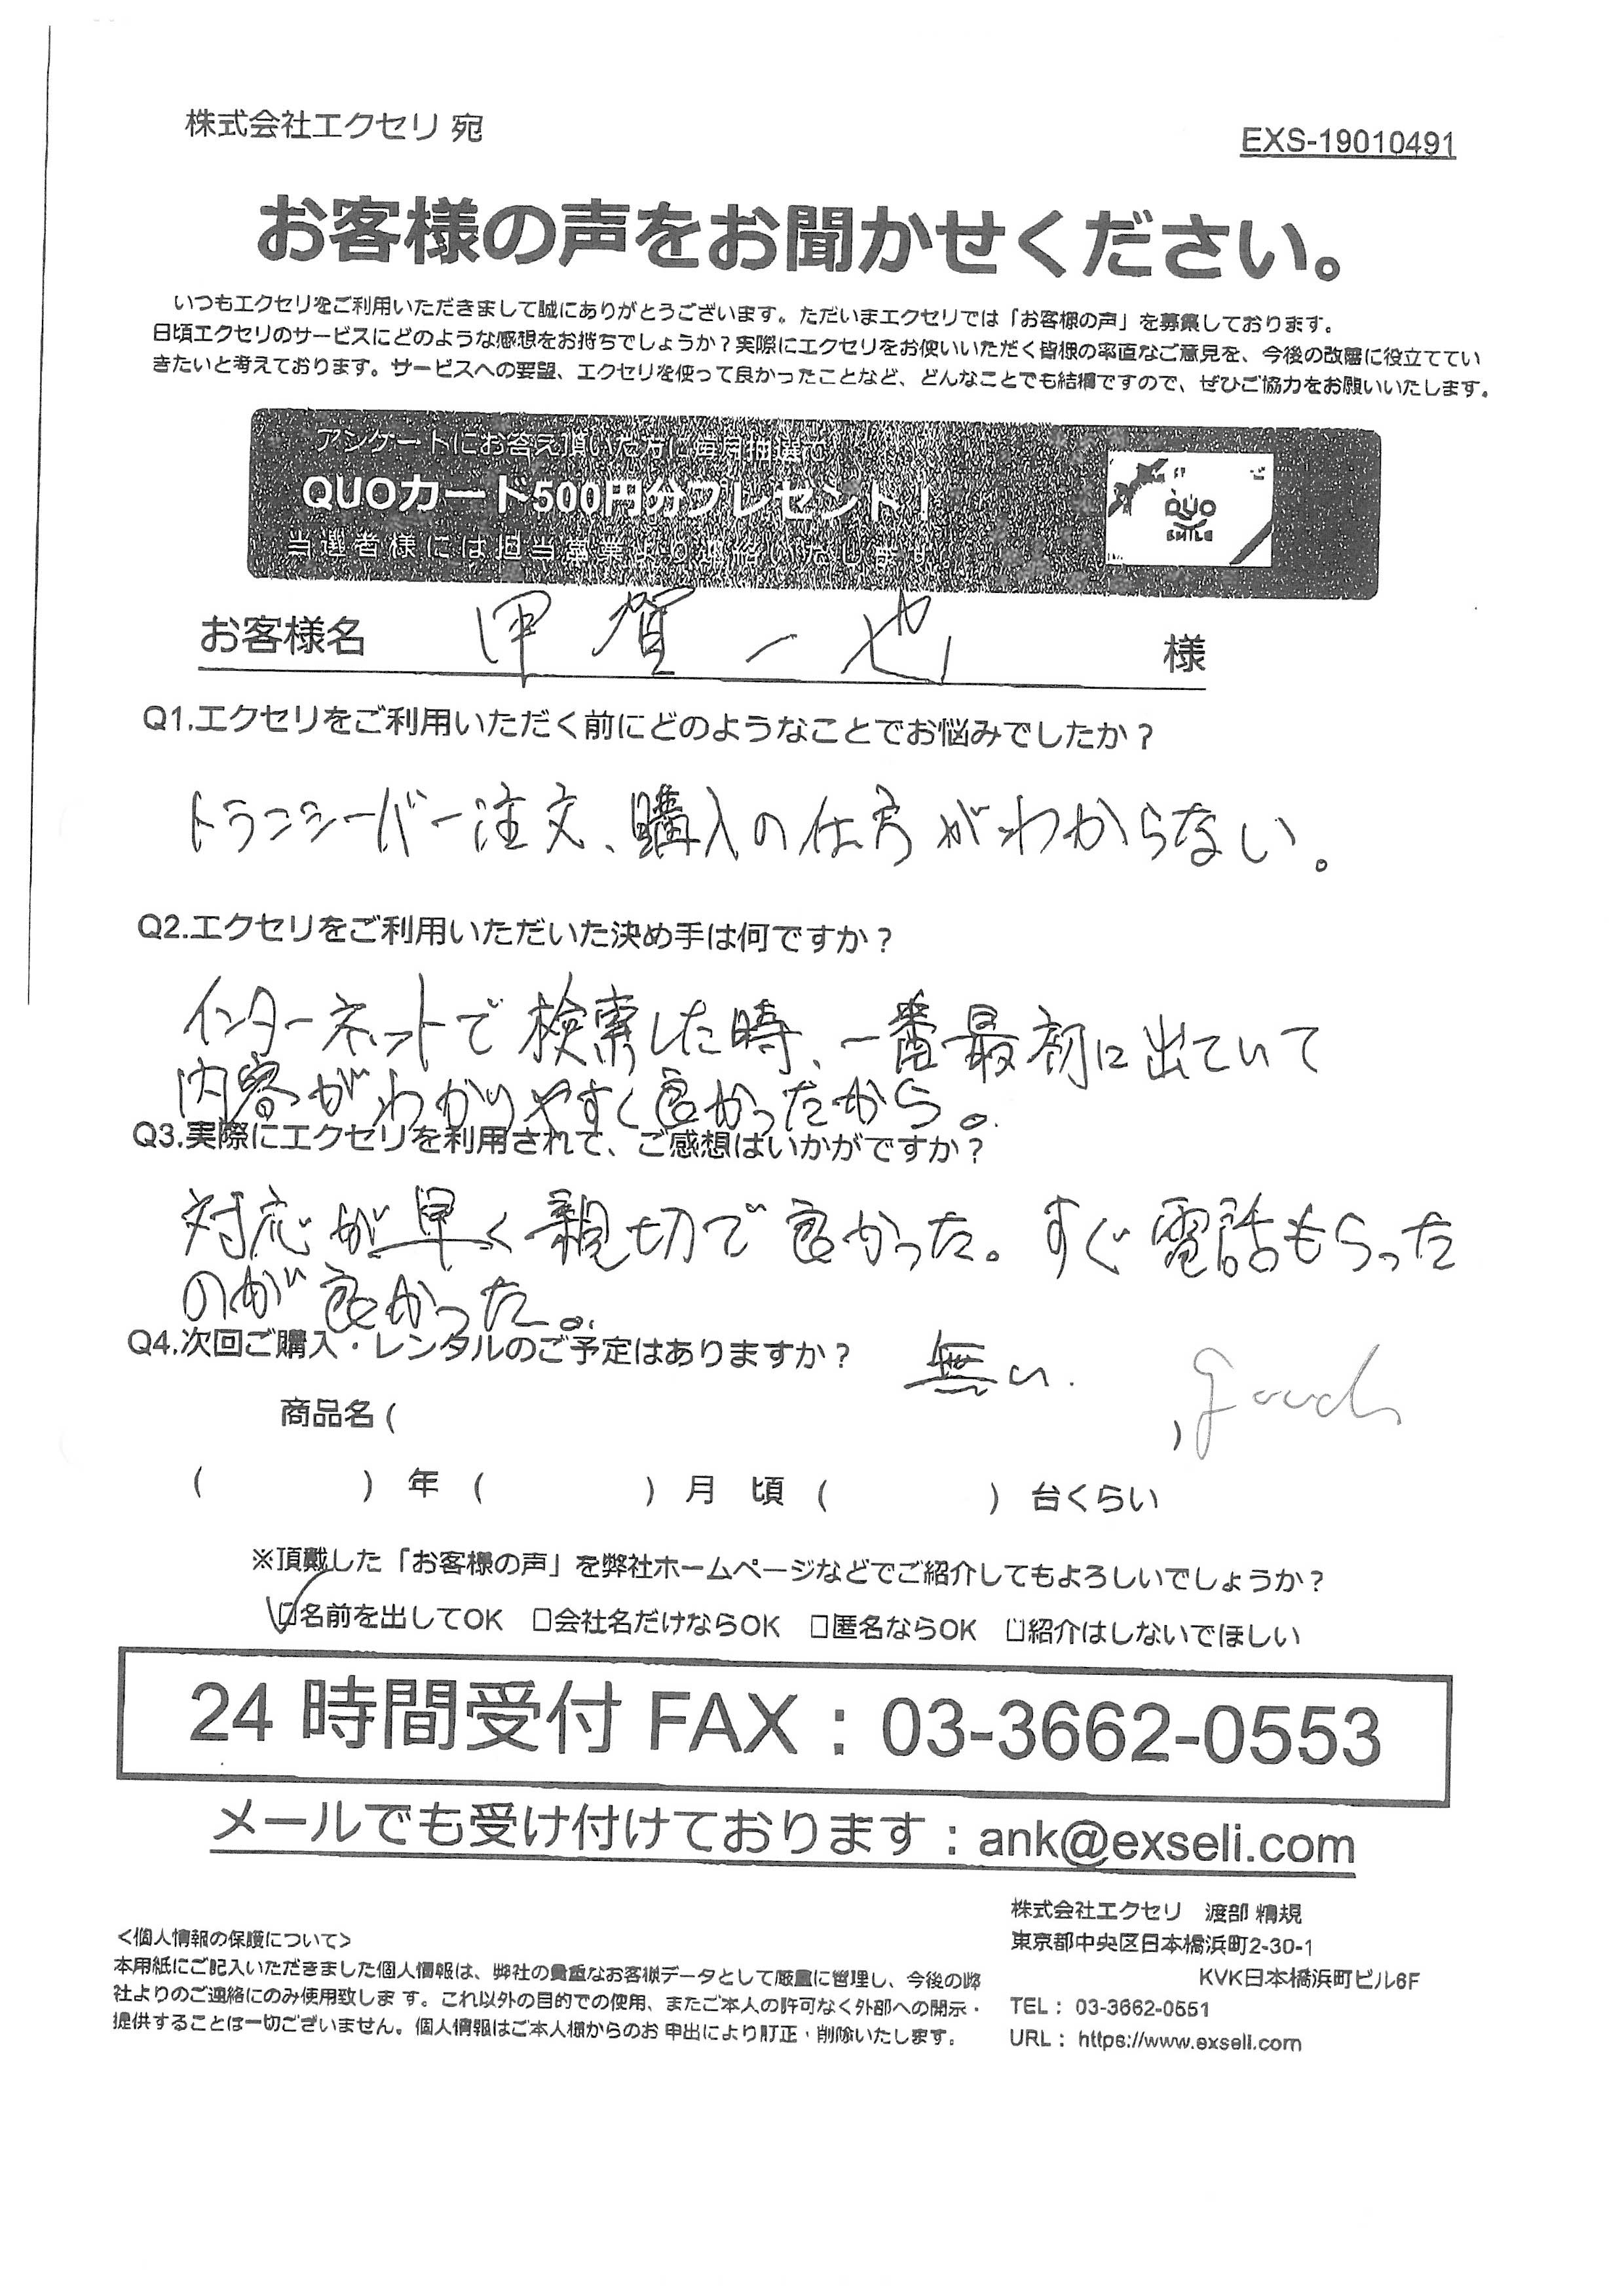 株式会社エクセリ 宛
EXS-19010491
お客様の声をお聞かせください。
いつもエクセリをご利用いただきまして誠にありがとうございます。ただいまエクセリでは「お客様の声」を募集しております。
日頃エクセリのサービスにどのような感想をお持ちでしょうか？実際にエクセリをお使いいただく皆様の率直なご意見を、今後の改善に役立ててい
きたいと考えております。サービスへの要望、エクセリを使って良かったことなど、どんなことでも結構ですので、ぜひご協力をお願いいたします。
アンケートにお答え頂いた方に毎月抽選で
QUOカード500円分プレゼント！
当選者様には担当営業より連絡いたします
QUO
SMILE
お客様名 甲賀一也 様
Q1.エクセリをご利用いただく前にどのようなことでお悩みでしたか？
トランシーバー注文、購入の仕方がわからない。
Q2.エクセリをご利用いただいた決め手は何ですか？
インターネットで検索した時、一番最初に出ていて
内容がわかりやすく良かったから。
Q3.実際にエクセリを利用されて、ご感想はいかがですか？
対応が早く親切で良かった。すぐ電話もらった
のが良かった。
Q4.次回ご購入・レンタルのご予定はありますか？ 無い.
商品名（ ） good
（ ）年（ ）月 頃（ ）台くらい
※頂戴した「お客様の声」を弊社ホームページなどでご紹介してもよろしいでしょうか？
☑名前を出してOK □会社名だけならOK □匿名ならOK □紹介はしないでほしい
24 時間受付 FAX：03-3662-0553
メールでも受け付けております：ank@exseli.com
＜個人情報の保護について＞
本用紙にご記入いただきました個人情報は、弊社の貴重なお客様データとして厳重に管理し、今後の弊
社よりのご連絡にのみ使用致します。これ以外の目的での使用、またご本人の許可なく外部への開示・
提供することは一切ございません。個人情報はご本人様からのお申出により訂正・削除いたします。
株式会社エクセリ 渡部 精規
東京都中央区日本橋浜町2-30-1
KVK日本橋浜町ビル6F
TEL： 03-3662-0551
URL： https://www.exseli.com